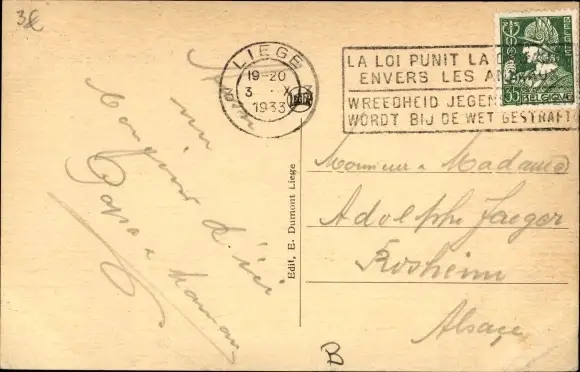 3€
LIEGE
19-20
3 X
1933
LA LOI PUNIT LA
ENVERS LES
WREEDHEID JEGENS
WORDT BIJ DE WET GESTRAFT
35
BELGIQUE
un
Bonjour d'ici
Papa & Maman
Edit. E. Dumont Liege
Monsieur & Madame
Adolphe Jaeger
Rosheim
Alsace
B